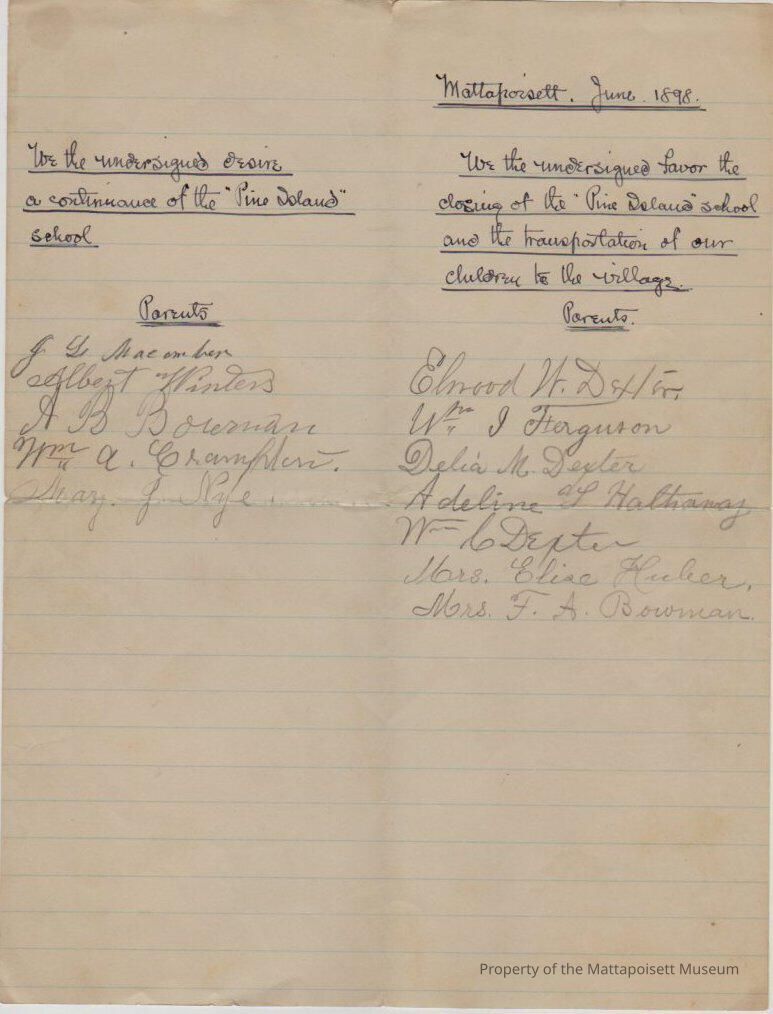 We the undersigned desire
a continuance of the "Pine Island"
school
Parents
J L Macomber
Albert Winters
A B Bowman
Wm A. Crampton.
Mary J Nye
Mattapoisett. June 1898.
We the undersigned favor the
closing of the "Pine Island" school
and the transportation of our
children to the village.
Parents.
Elwood W. Dexter,
Wm I Ferguson
Delia M. Dexter
Adeline Hathaway
Wm C Dexter
Mrs. Elise Huber,
Mrs. F. A. Bowman.
Property of the Mattapoisett Museum